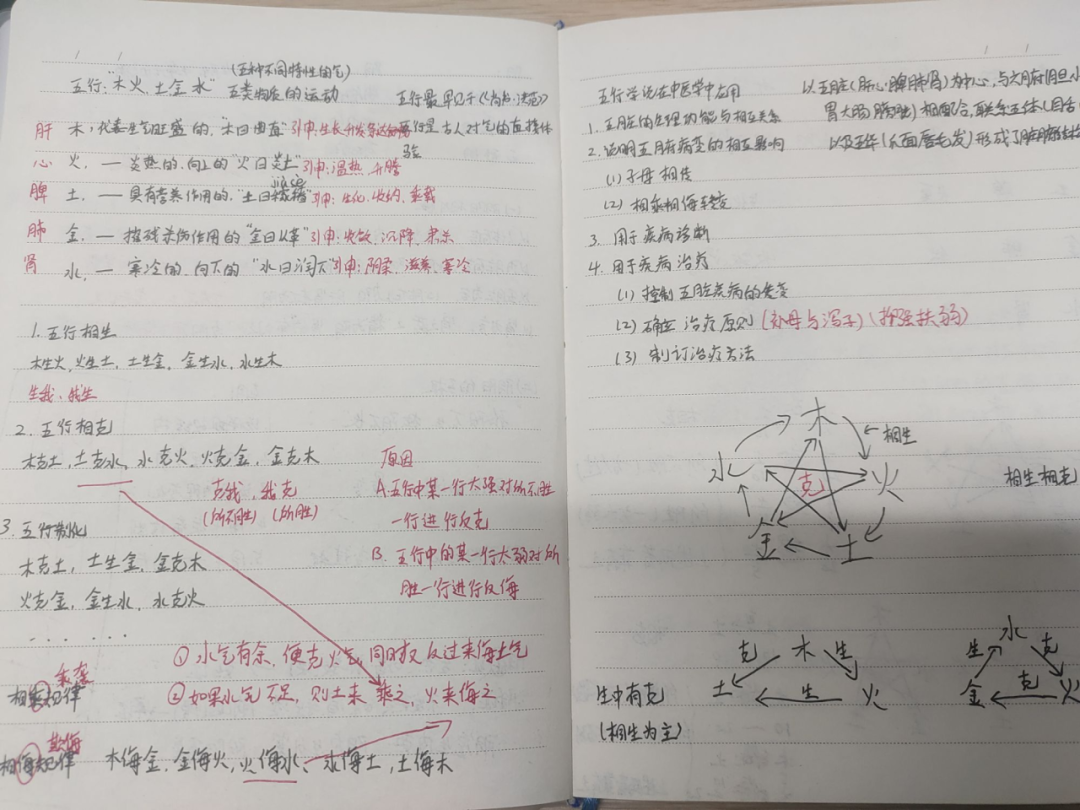 (五种不同特性的气)
五行:"木火、土金水" 五类物质的运动 五行最早见于《尚书·洪范》
肝 木,代表生气旺盛的,"木曰曲直"引申:生长 升发 五行是古人对气的直接体验
心 火,—炎热的、向上的"火曰炎上"引申:温热、升腾
jià sè
脾 土,—具有营养作用的,"土曰稼穑"引申:生化、收纳、承载
肺 金,—摧残杀伤作用的"金曰从革"引申:收敛、沉降、肃杀
肾 水,—寒冷的、向下的"水曰润下"引申:阴柔、滋养、寒冷
1. 五行相生
木生火,火生土,土生金,金生水,水生木
生我,我生
2. 五行相克
木克土,土克水,水克火,火克金,金克木
克我,我克
(所不胜) (所胜)
原因
A.五行中某一行太强对所不胜
一行进行反克
B. 五行中的某一行太弱对所
胜一行进行反侮
3. 五行制化
木克土,土生金,金克木
火克金,金生水,水克火
. . . . . .
① 水气有余,便克火气,同时又反过来侮土气
② 如果水气不足,则土来乘之,火来侮之
乘袭
相乘规律
相侮规律
木侮金,金侮火,火侮水、水侮土,土侮木
五行学说在中医学中应用
1. 五脏的生理功能与相互关系
2. 说明五脏病变的相互影响
(1) 子母相传
(2) 相乘相侮转变
3. 用于疾病诊断
4. 用于疾病治疗
(1) 控制五脏疾病的传变
(2) 确立治疗原则(补母与泻子)(抑强扶弱)
(3) 制订治疗方法
以五脏(肝心脾肺肾)为中心,与六腑(胆小
胃大肠膀胱)相配合,联系五体(目舌
以及五华(爪面唇毛发)形成了
木
相生
水 克 火
金 土
相生相克
生中有克
(相生为主)
克 木 生
土 生 火
水
生 克
金 克 火